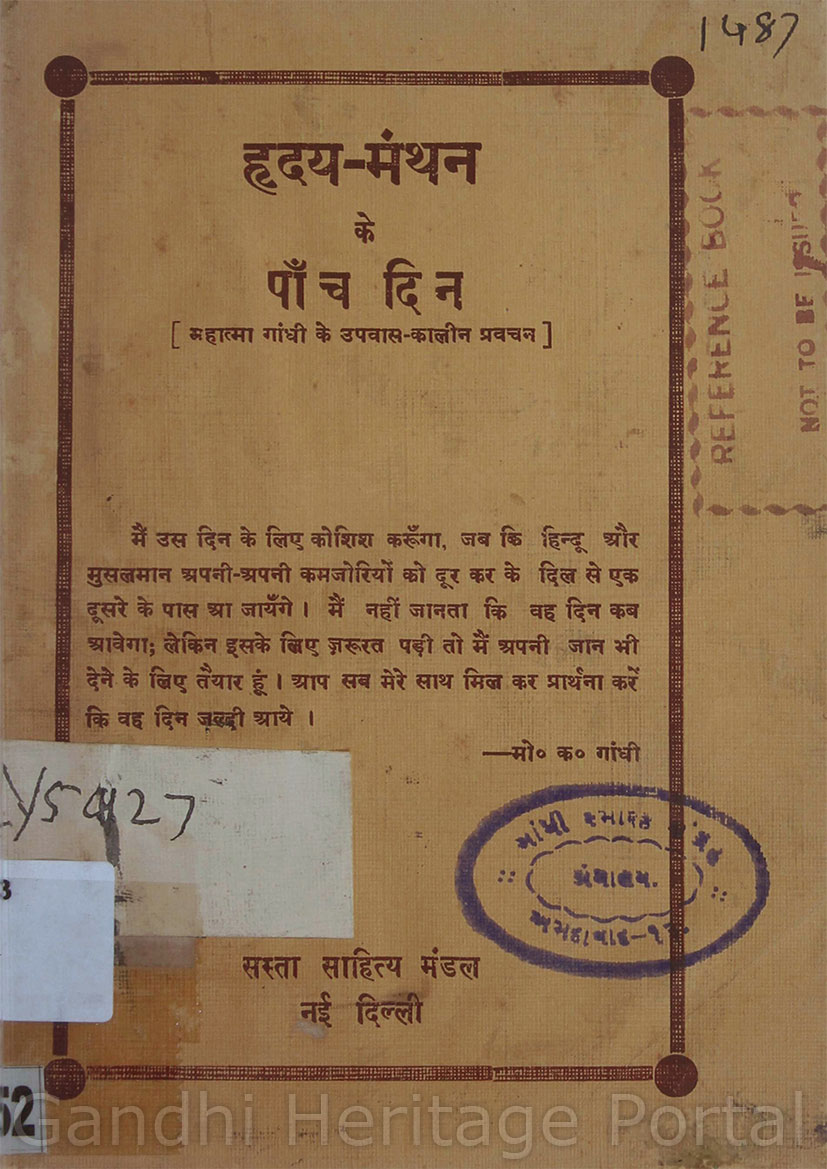 1487
हृदय-मंथन
के
पाँच दिन
[ महात्मा गांधी के उपवास-कालीन प्रवचन ]
REFERENCE BOOK
NOT TO BE
मैं उस दिन के लिए कोशिश करूँगा, जब कि हिन्दू और
मुसलमान अपनी-अपनी कमजोरियों को दूर कर के दिल से एक
दूसरे के पास आ जायँगे । मैं नहीं जानता कि वह दिन कब
आवेगा; लेकिन इसके लिए ज़रूरत पड़ी तो मैं अपनी जान भी
देने के लिए तैयार हूं । आप सब मेरे साथ मिल कर प्रार्थना करें
कि वह दिन जल्दी आये ।
—मो० क० गांधी
ગાંધી સ્મારક સંગ્રહ
ગ્રંથાલય.
અમદાવાદ-૧૩.
सस्ता साहित्य मंडल
नई दिल्ली
3
52
Gandhi Heritage Portal